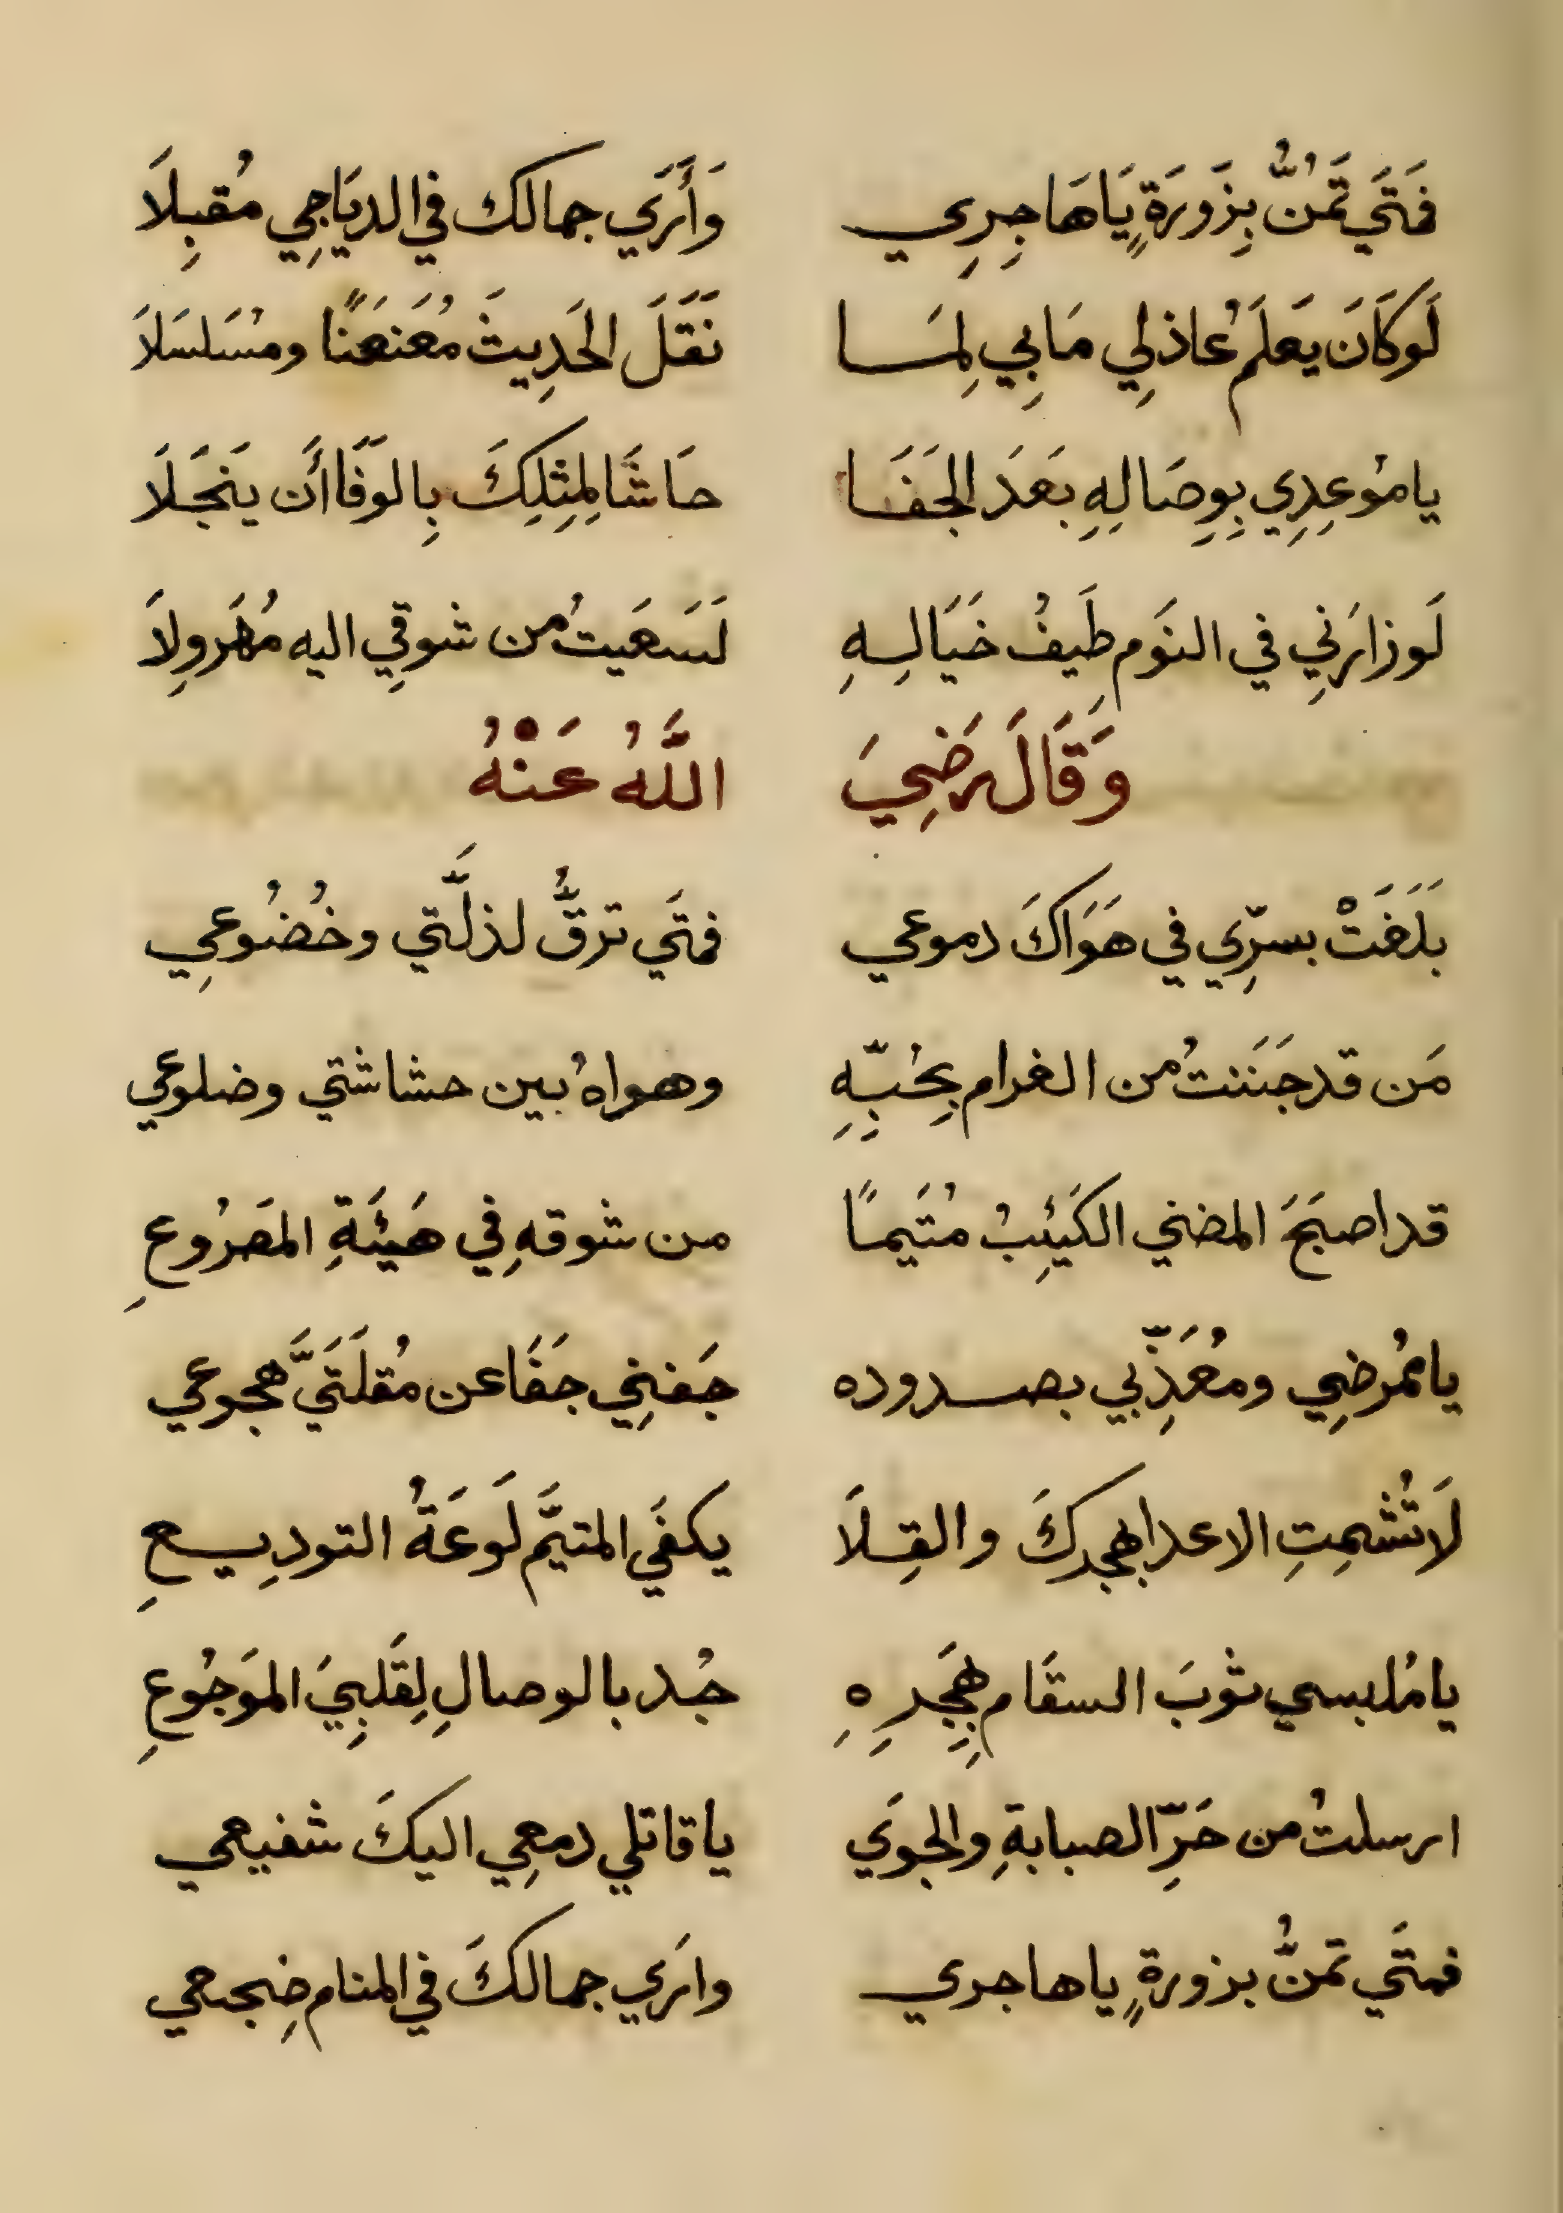 فَمَتَي تَمُنُّ بِزَورَةٍ يَاهَاجِرِي وَأَرَي جمالك في الديَاجِي مُقبِلَا
لَو كَانَ يَعلَمُ عاذلِي مَابِي لِمَا نَقَلَ الحَدِيثَ مُعَنعَنًا ومُسَلسَلَا
يامُوعِدِي بِوِصَالِهِ بَعَدَ الجَفَا حَاشَا لِمِثلِكَ بِالوَفَا أَن يَنجَلَا
لَو زارَنِي في النَومِ طَيفُ خَيَالِهِ لَسَعَيتُ من شوقِي اليه مُهَروِلَا
وَقَالَ رَضِيَ اللَّهُ عَنْهُ
بَلَغَتْ بسرِّي في هَوَاكَ دموعي فمتَي ترقُّ لذلَّتي وخُضُوعِي
مَن قد جَنَنتُ من الغرام بِحُبِّهِ وهواهُ بين حشاشتي وضلوعي
قد اصبَحَ المضني الكَئِيبُ مُتَيمًا من شوقهِ في هَيئَةِ المَصرُوعِ
يامُمرضِي ومُعَذِّبي بصدوده جَفنِي جَفَا عن مُقلَتَيَّ هجوعي
لَاتُشمِتِ الاعدا بهجركَ والقِلَا يكفَي المتيَّم لَوعَةُ التودِيعِ
يامُلبسي ثوبَ السقَام بِهَجِرِهِ جُد بالوصالِ لِقَلبِيَ المَوجُوعِ
ارسلتُ من حَرِّ الصبابةِ والجوَي ياقاتلي دمعِي اليكَ شفيعي
فمتَي تمنُّ بزورةٍ ياهاجري وارَي جمالكَ في المنام ضِجيعي